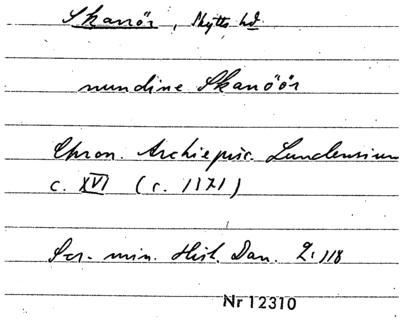 Skanör, Skytts hd.
nundine Skanöör
Chron. Archiepisc. Lundensium
c. XVI (c. 1171)
Scr. min. Hist. Dan. 2. 118
Nr 12310